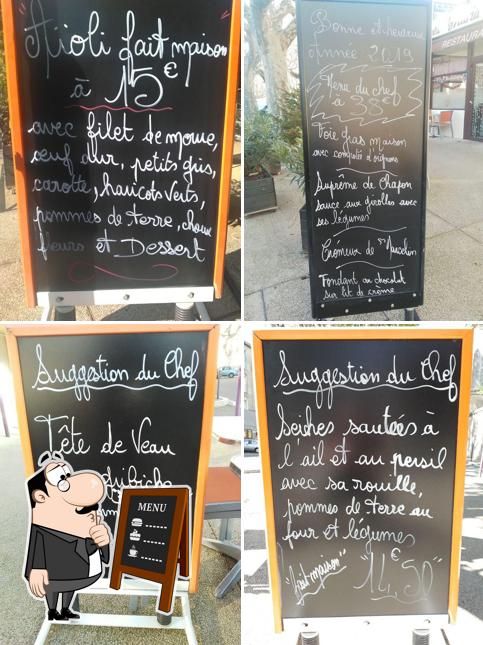 "Aioli fait maison"
à 15€
avec filet de morue,
œuf dur, petits gris,
carotte, haricots verts,
pommes de terre, choux
fleurs et Dessert
Bonne et heureuse
Année 2019
Menu du chef
à 38€
Foie gras maison
avec compotée d'oignons
Suprême de Chapon
sauce aux girolles avec
ses légumes
Crémeux de St Marcelin
Fondant au chocolat
sur lit de crème
RESTAURA
Suggestion du Chef
Tête de Veau
MENU
Suggestion du Chef
Seiches sautées à
l'ail et au persil
avec sa rouille,
pommes de terre au
four et légumes
"fait maison" "14,50€"